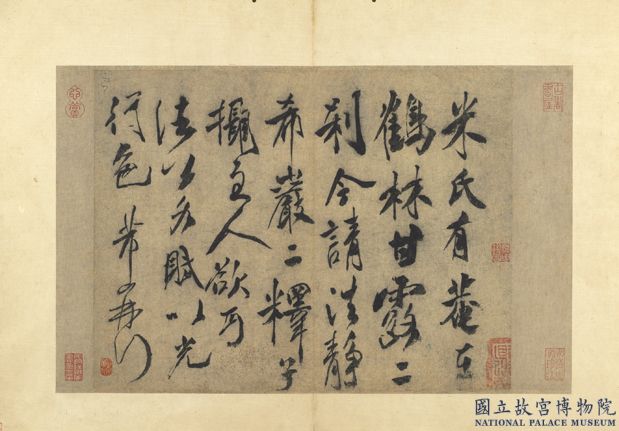 米氏有菴在
鶴林甘露二
剎今請法靜
希巖二釋子
攝主人欲可
法公各賦以光
行色 芾再拜
國立故宮博物院
NATIONAL PALACE MUSEUM